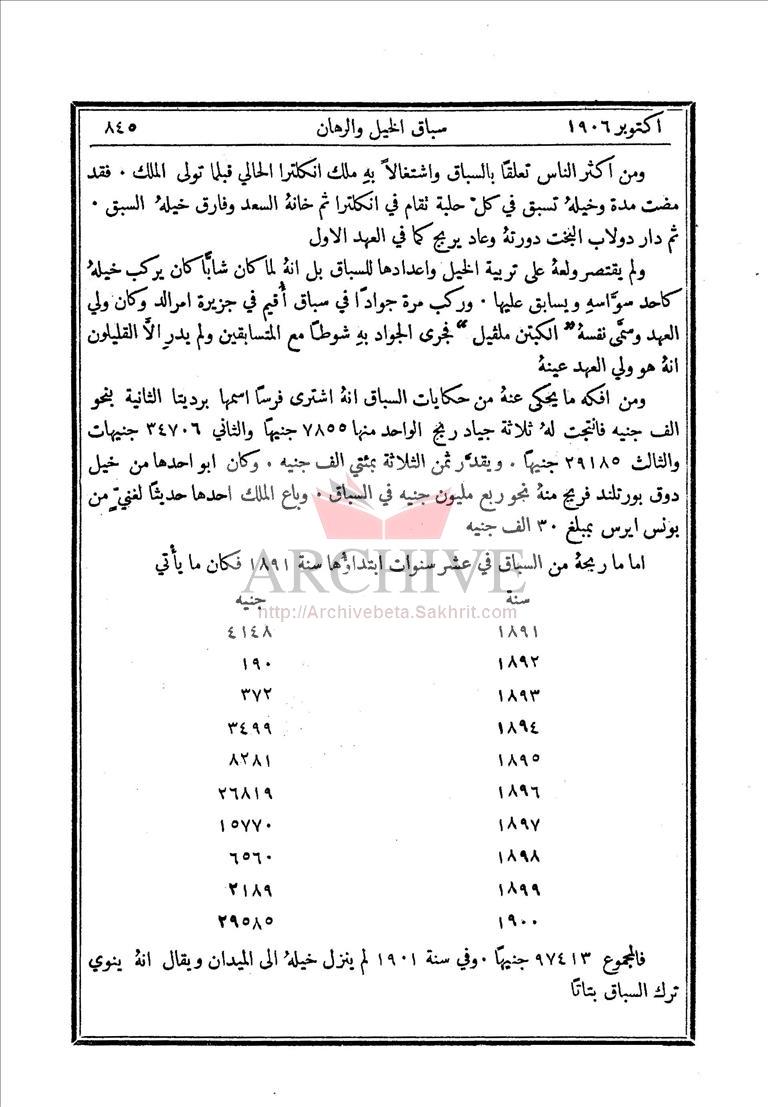 اكتوبر ١٩٠٦ سباق الخيل والرهان ٨٤٥
ومن اكثر الناس تعلقًا بالسباق واشتغالاً بهِ ملك انكلترا الحالي قبلما تولى الملك ٠ فقد
مضت مدة وخيلهُ تسبق في كلّ حلبة تقام في انكلترا ثم خانهُ السعد وفارق خيلهُ السبق ٠
ثم دار دولاب البخت دورتهُ وعاد يربح كما في العهد الاول
ولم يقتصر ولعهُ على تربية الخيل واعدادها للسباق بل انهُ لما كان شابًّا كان يركب خيلهُ
كاحد سوَّاسهِ ويسابق عليها ٠ وركب مرة جوادًا في سباق أُقيم في جزيرة امرالد وكان ولي
العهد وسمَّى نفسهُ ”الكبتن ملڤيل“ فجرى الجواد بهِ شوطًا مع المتسابقين ولم يدرِ الاَّ القليلون
انهُ هو ولي العهد عينهُ
ومن افكه ما يحكى عنهُ من حكايات السباق انهُ اشترى فرسًا اسمها برديتا الثانية بنحو
الف جنيه فانتجت لهُ ثلاثة جياد ربح الواحد منها ٧٨٥٥ جنيهًا والثاني ٣٤٧٠٦ جنيهات
والثالث ٢٩١٨٥ جنيهًا ٠ ويقدَّر ثمن الثلاثة بمئتي الف جنيه ٠ وكان ابو احدها من خيل
دوق بورتلند فربح منهُ نحو ربع مليون جنيه في السباق ٠ وباع الملك احدها حديثًا لغنيّ من
بونس ايرس بمبلغ ٣٠ الف جنيه
اما ما ربحهُ من السباق في عشر سنوات ابتداؤُها سنة ١٨٩١ فكان ما يأْتي
ARCHIVE
سنة جنيه
http://Archivebeta.Sakhrit.com
١٨٩١ ٤١٤٨
١٨٩٢ ١٩٠
١٨٩٣ ٣٧٢
١٨٩٤ ٣٤٩٩
١٨٩٥ ٨٢٨١
١٨٩٦ ٢٦٨١٩
١٨٩٧ ١٥٧٧٠
١٨٩٨ ٦٥٦٠
١٨٩٩ ٢١٨٩
١٩٠٠ ٢٩٥٨٥
فالمجموع ٩٧٤١٣ جنيهًا ٠ وفي سنة ١٩٠١ لم ينزل خيلهُ الى الميدان ويقال انهُ ينوي
ترك السباق بتاتًا